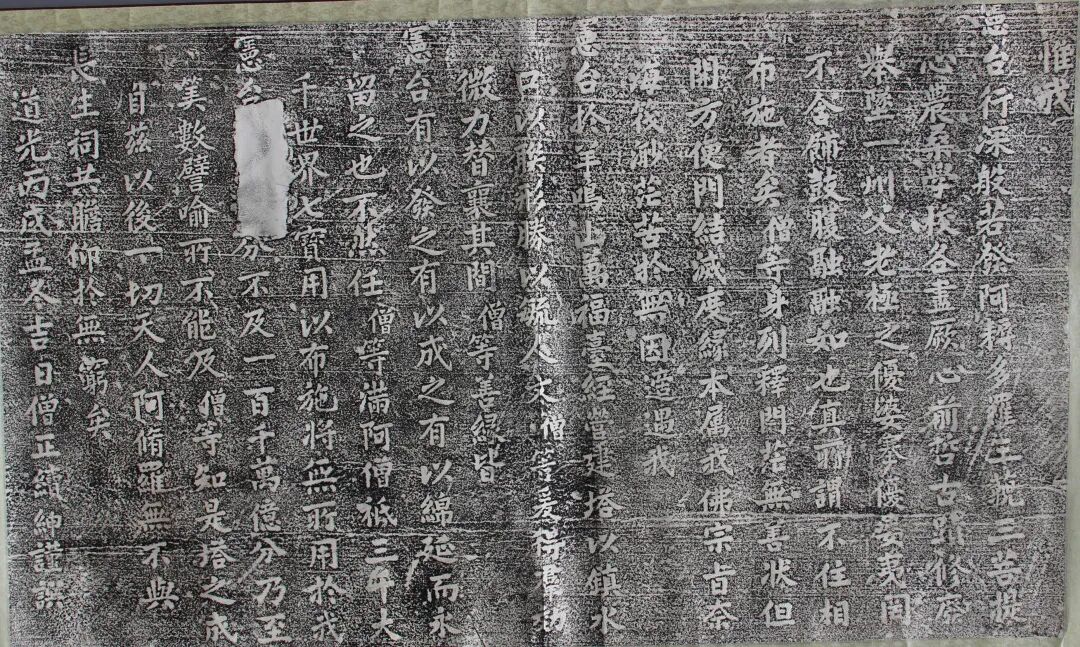 惟我
憲台行深般若發阿耨多羅三藐三菩提
心農桑學校各盡厥心前哲古蹟修廢
舉墜一州父老極之優婆
不含餔鼓腹融融如也真所謂不住相
布施者矣僧等身列釋門茫無善狀但
開方便門結滅度緣本属我佛宗旨奈
海筏渺茫苦於無因遭遇我
憲台於羊鳴山萬福臺經營建塔以鎮水
口以 勝以 人文僧等爰得
微力替襄其間僧等善緣皆
憲台有以發之有以成之有以綿延而永
留之也不然任僧等滿阿僧祇三千大
千世界七寶用以布施將無所用於我
憲台 分不及一百千萬億分乃至
美數譬喻所不能及僧等知是塔之成
自茲以後一切天人阿脩羅無不與
長生祠共瞻仰於無窮矣
道光丙戌孟冬吉日僧正續紳謹譔